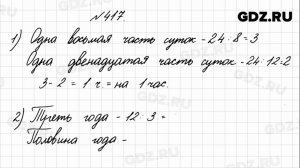 GDZ.RU
№417.
1) Одна восьмая часть суток - 24 : 8 = 3
Одна двенадцатая часть суток - 24 : 12 = 2
3 - 2 = 1 ч. = на 1 час.
2) Треть года - 12 : 3 =
Половина года -
GDZ.RU